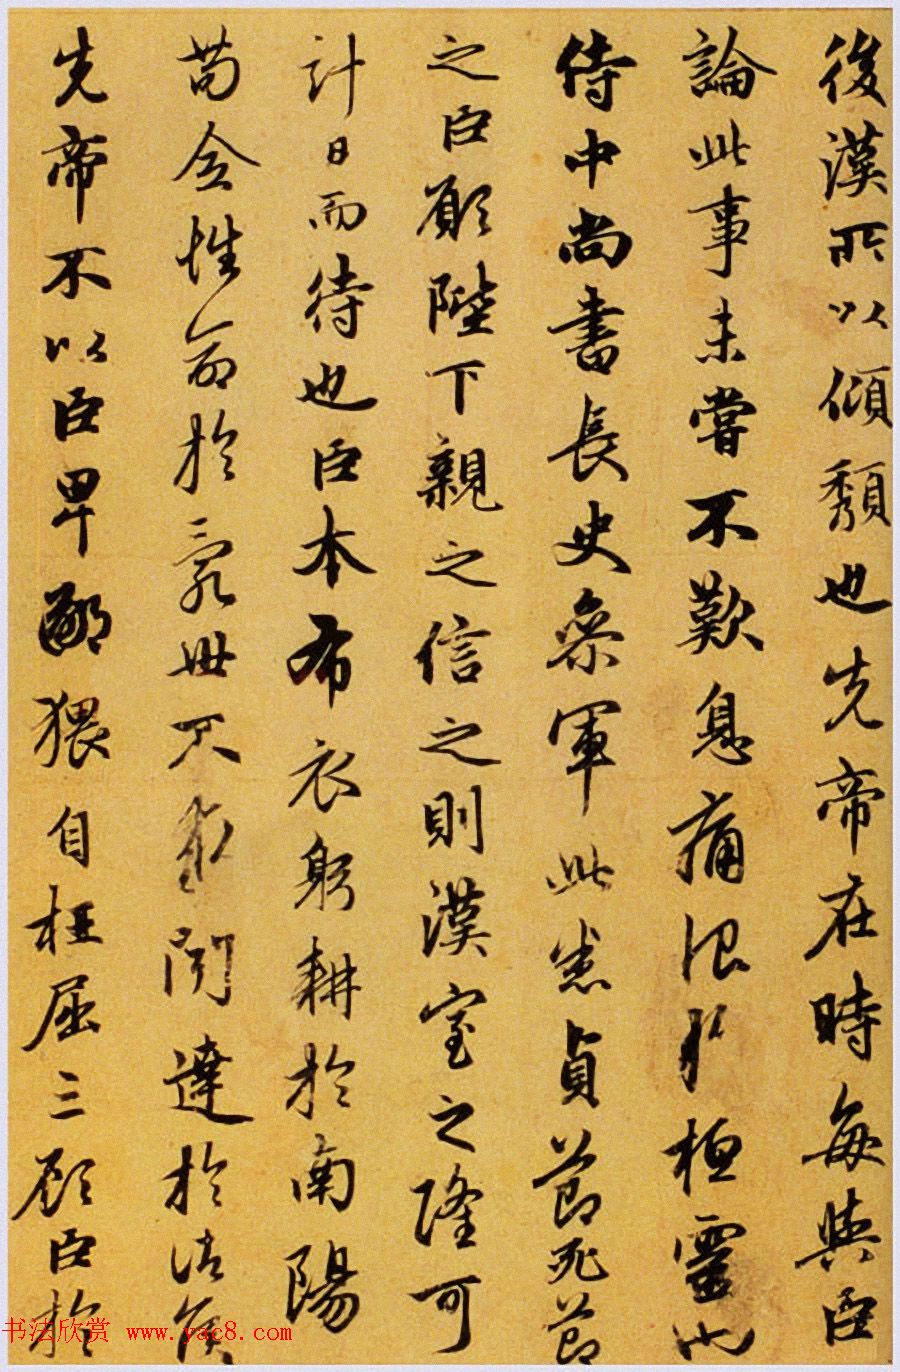 後漢所以傾頹也先帝在時每與臣
論此事未嘗不歎息痛恨於桓靈也
侍中尚書長史參軍此悉貞節死節
之臣願陛下親之信之則漢室之隆可
計日而待也臣本布衣躬耕於南陽
苟全性命於亂世不求聞達於諸侯
先帝不以臣卑鄙猥自枉屈三顧臣於
书法欣赏 www.yac8.com